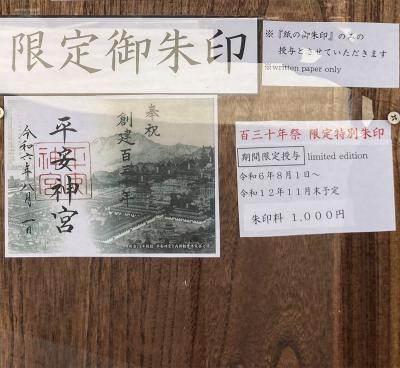 限定御朱印
※『紙の御朱印』のみの
授与とさせていただきます
※written paper only
奉祝
創建百三十年
平安神宮
令和六年八月一日
百三十年祭 限定特別朱印
期間限定授与 limited edition
令和6年8月1日～
令和12年11月末予定
朱印料 1,000円